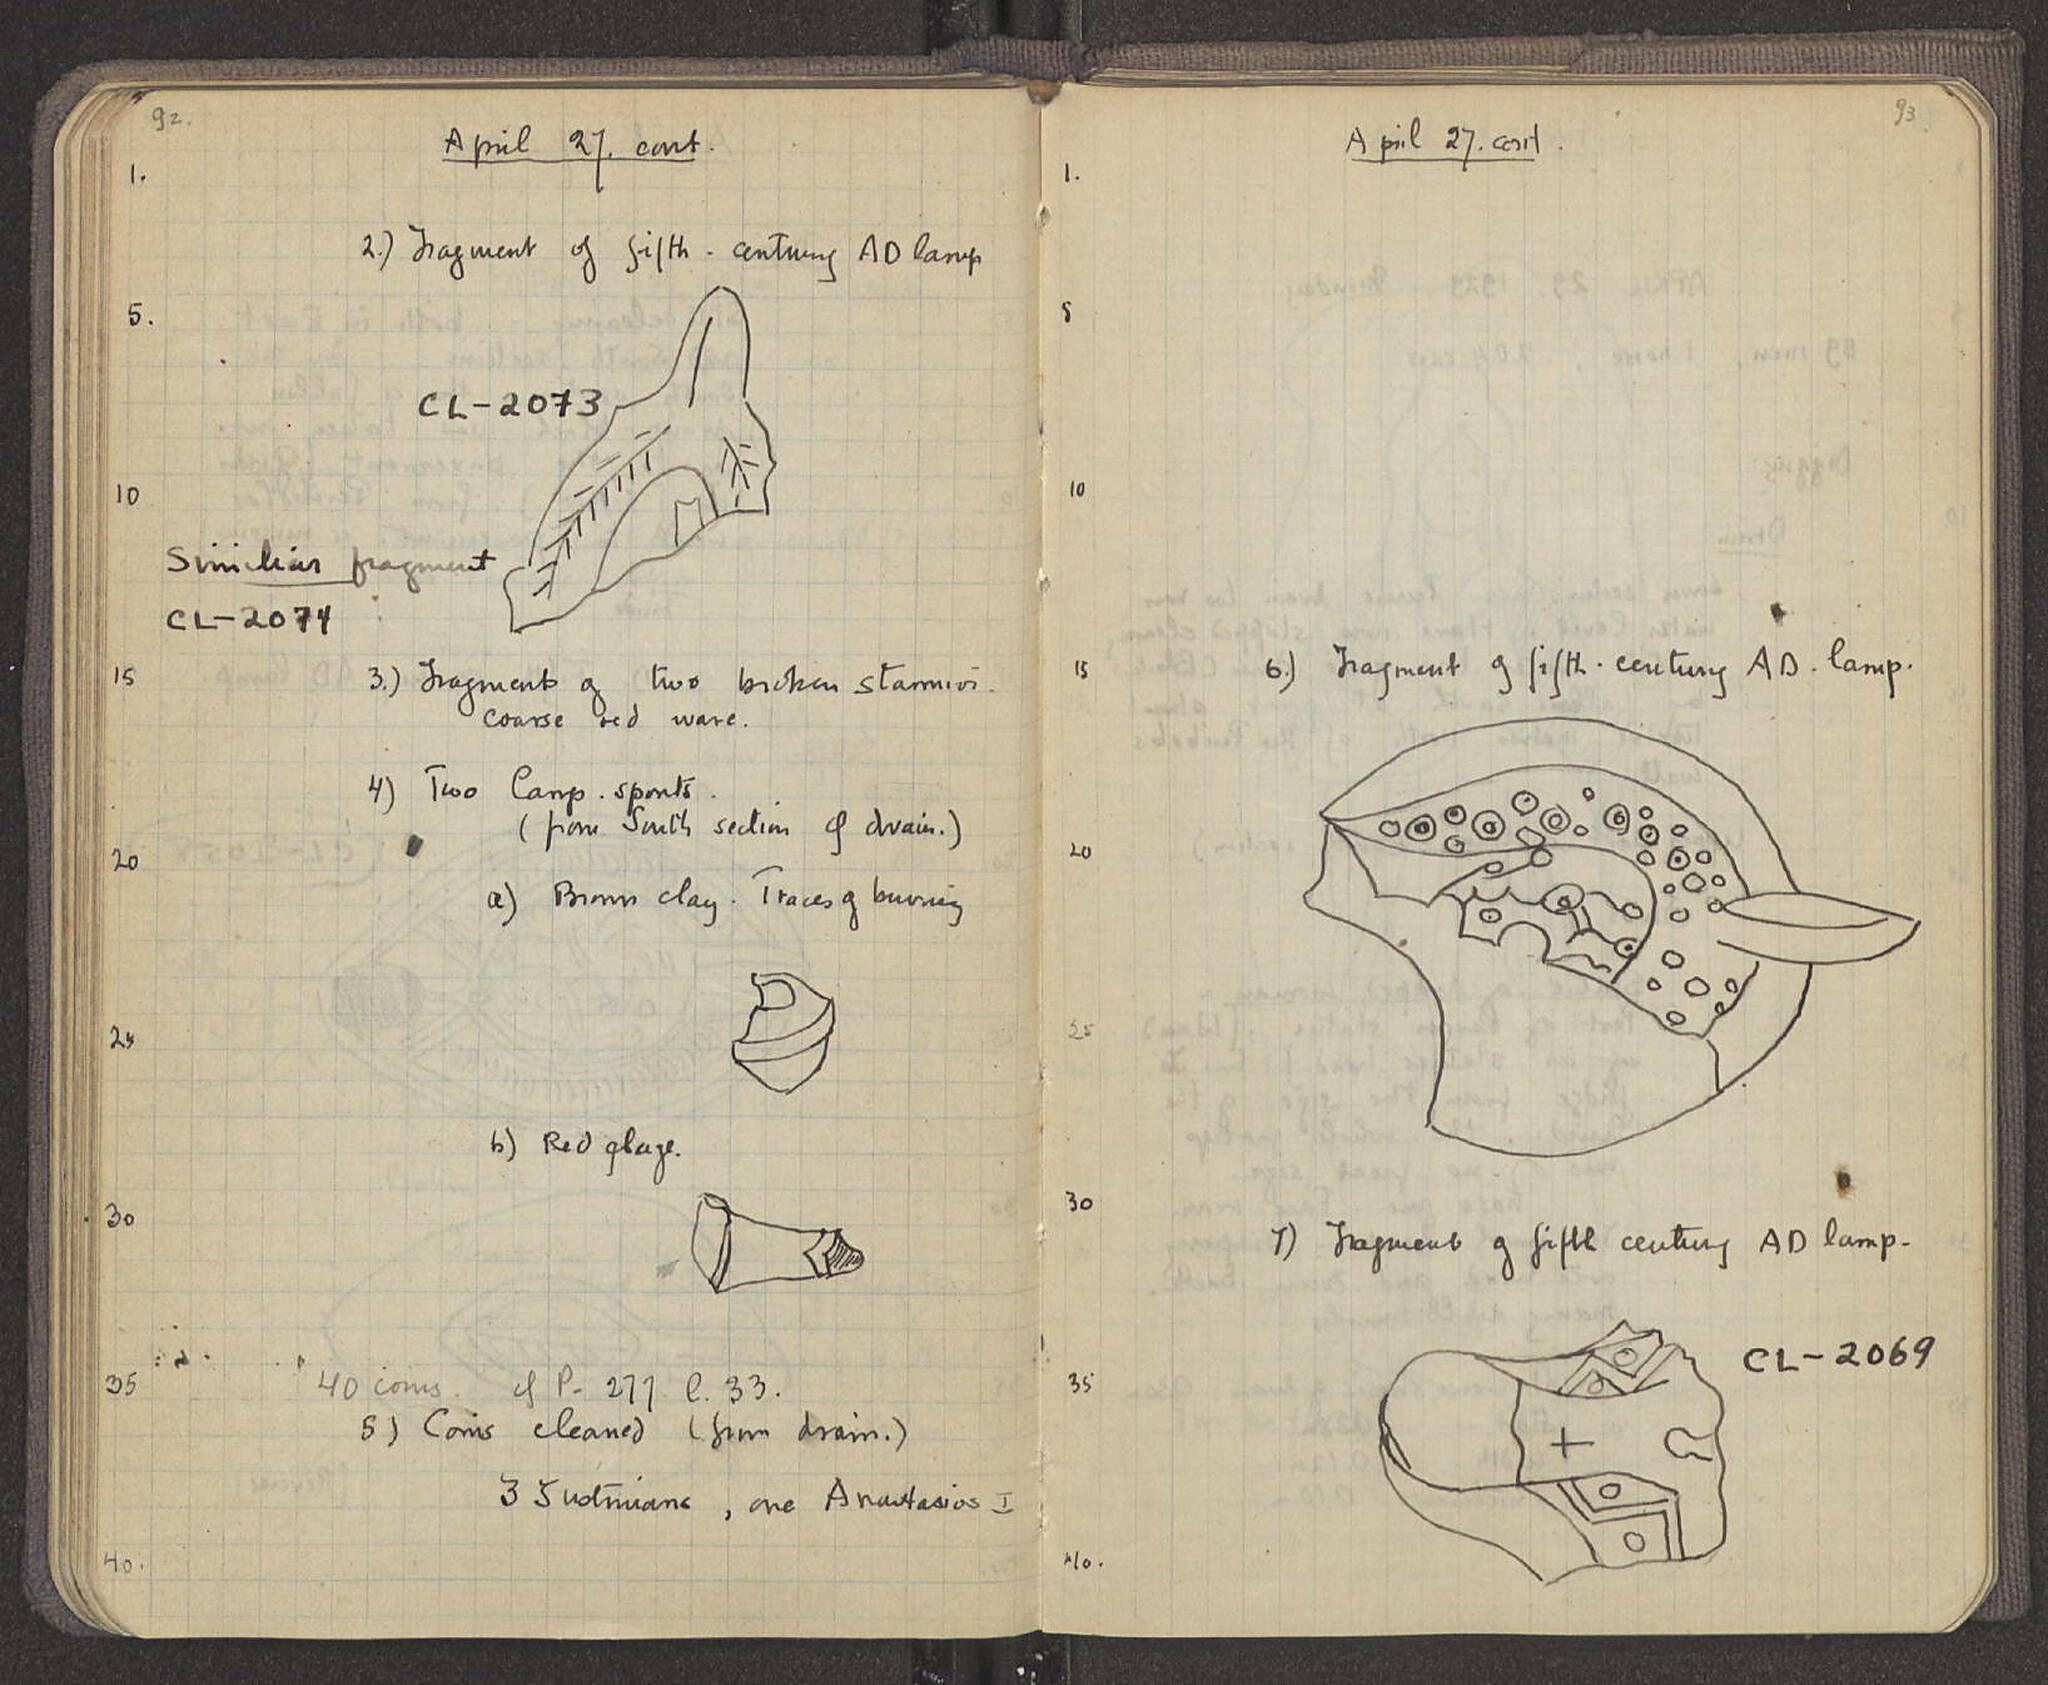 92.
April 27. cont.
1.
2.) Fragment of fifth-century AD lamp
5.
CL-2073
10
Similiar fragment
CL-2074
15
3.) Fragments of two broken stamnoi.
coarse red ware.
4) Two lamp spouts.
(from South section of drain.)
20
a) Brown clay. Traces of burning
25
b) Red glaze.
30
35
40 coins. cf P. 277 l. 33.
5) Coins cleaned (from drain.)
3 Justinians, one Anastasios I
40.
93
April 27. cont.
1.
5
10
15
6.) Fragment of fifth-century AD. lamp.
20
25
30
7) Fragment of fifth century AD lamp.
35
CL-2069
40.